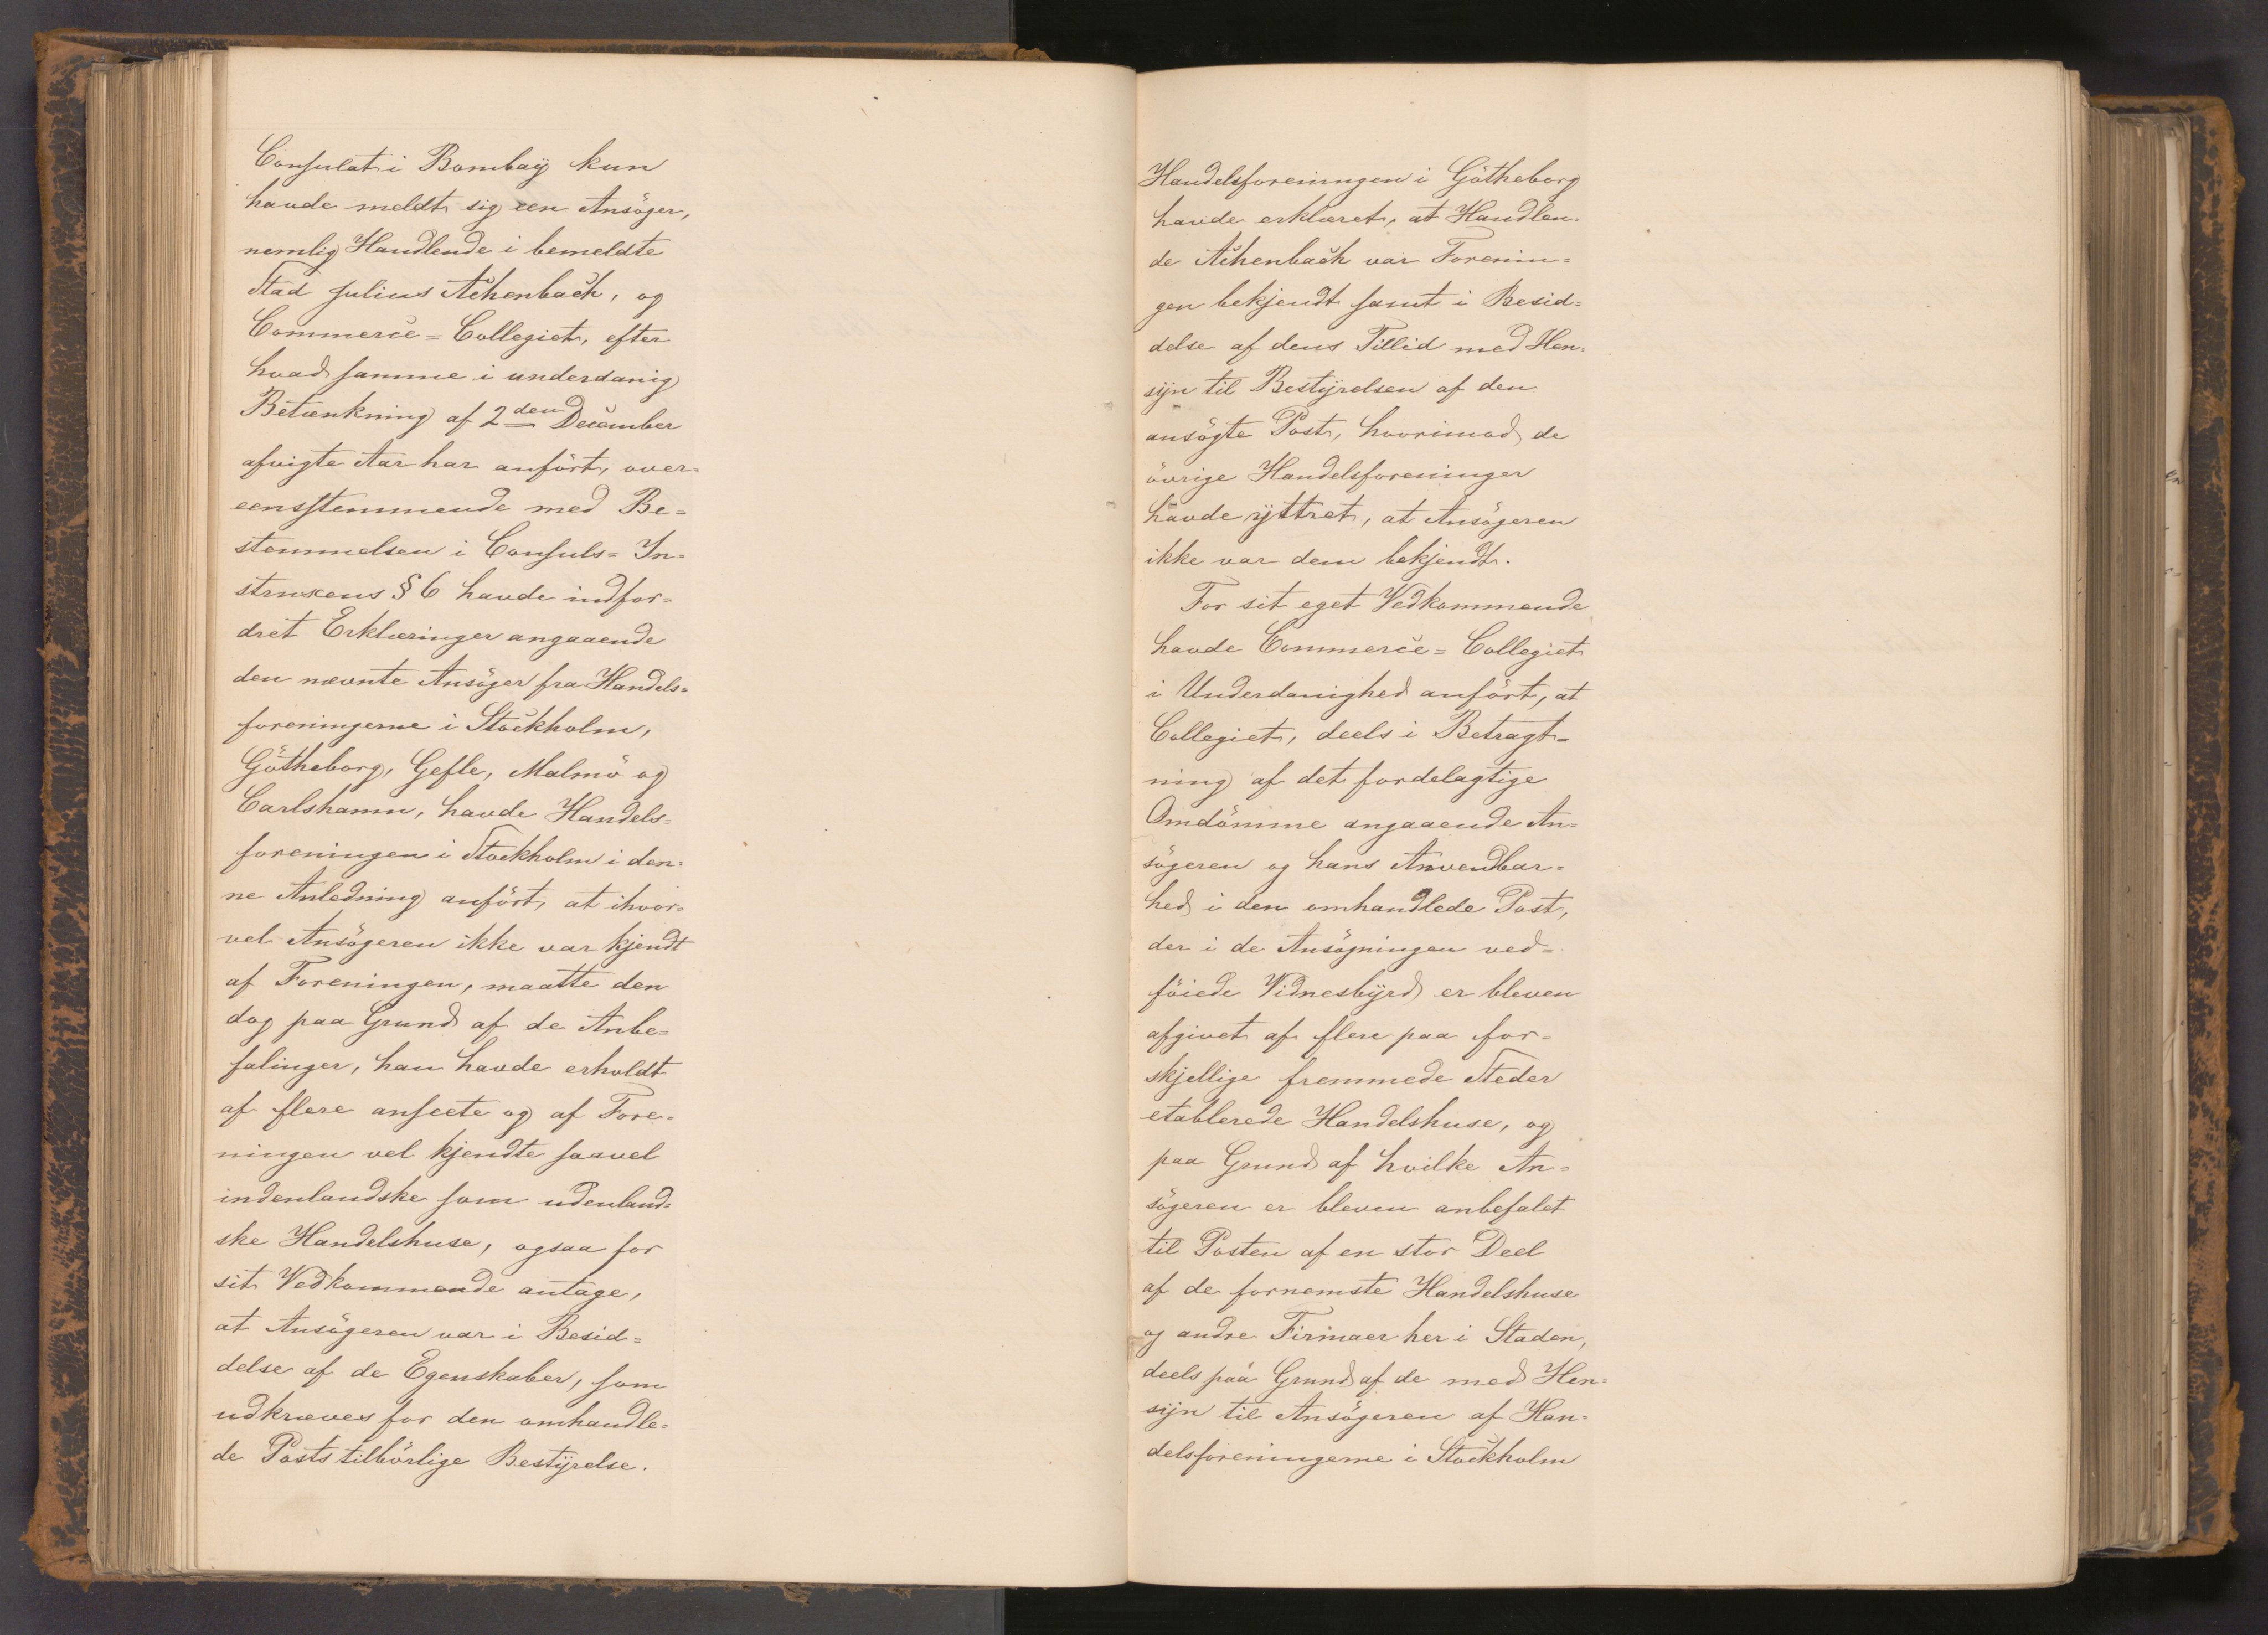 Consulat i Bombay kun
havde meldt sig een Ansöger,
nemlig Handlende i bemeldte
Stad Julius Achenbach, og
Commerce=Collegiet, efter
hvad samme i underdanig
Betænkning af 2den December
afvigte Aar har anfört, over=
eensstemmende med Be=
stemmelsen i Consuls=In=
struxens § 6 havde indfor=
dret Erklæringer angaaende
den nævnte Ansöger fra Handels=
foreningerne i Stockholm,
Götheborg, Gefle, Malmö og
Carlshamn, havde Handels=
foreningen i Stockholm i den=
ne Anledning anfört, at ihvor=
vel Ansögeren ikke var kjendt
af Foreningen, maatte den
dog paa Grund af de Anbe=
falinger, han havde erholdt
af flere anseete og af Fore=
ningen vel kjendte saavel
indenlandske som udenland=
ske Handelshuse, ogsaa for
sit Vedkommende antage,
at Ansögeren var i Besid=
delse af de Egenskaber, som
udkræves for den omhandle=
de Posts tilbörlige Bestyrelse.
Handelsforeningen i Götheborg
havde erklæret, at Handlen=
de Achenbach var Forenin=
gen bekjendt samt i Besid=
delse af dens Tillid med Hen=
syn til Bestyrelsen af den
ansögte Post, hvorimod de
övrige Handelsforeninger
havde yttret, at Ansögeren
ikke var dem bekjendt.
For sit eget Vedkommende
havde Commerce=Collegiet
i Underdanighed anfört, at
Collegiet, deels i Betragt=
ning af det fordelagtige
Omdömme angaaende An=
sögeren og hans Anvendbar=
hed i den omhandlede Post,
der i de Ansögningen ved=
föiede Vidnesbyrd er bleven
afgivet af flere paa for=
skjellige fremmede Steder
etablerede Handelshuse, og
paa Grund af hvilke An=
sögeren er bleven anbefalet
til Posten af en stor Deel
af de fornemste Handelshuse
og andre Firmaer her i Staden,
deels paa Grund af de med Hen=
syn til Ansögeren af Han=
delsforeningerne i Stockholm